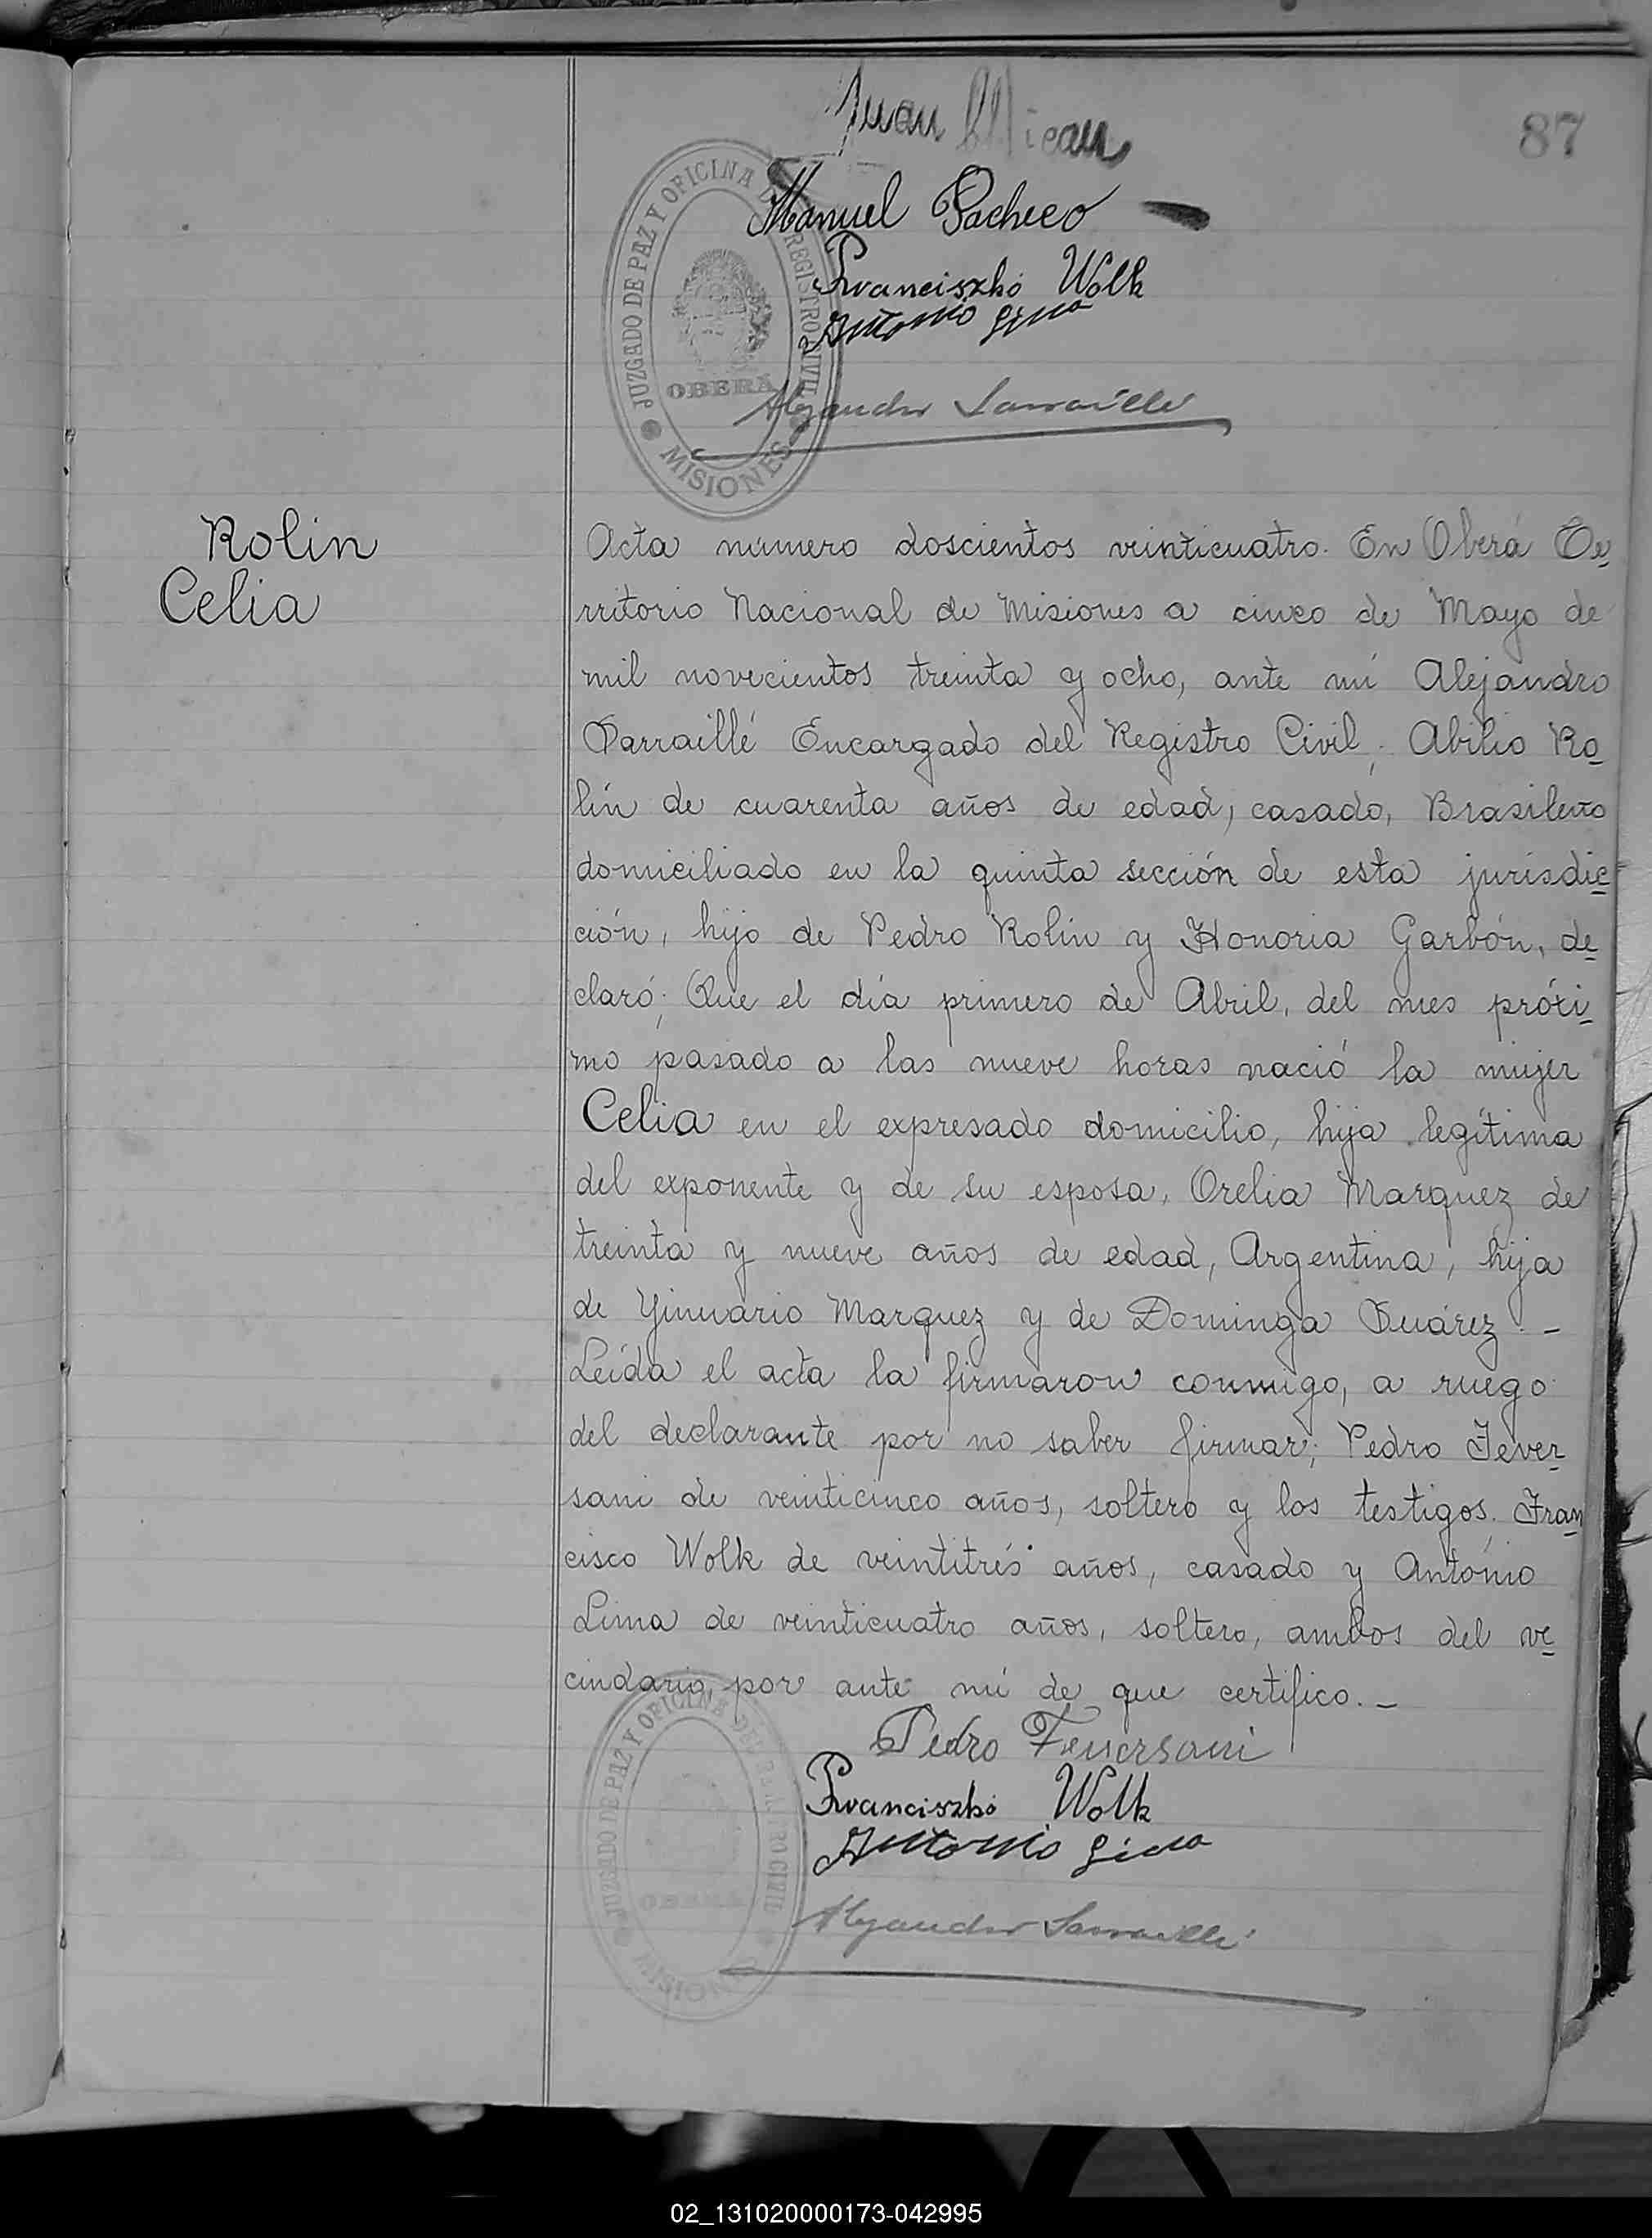 87
Juan
Manuel Pacheco
Franciszko Wolk
Antonio Lima
Alejandro Sarraillé
JUZGADO DE PAZ Y OFICINA DEL REGISTRO CIVIL
OBERA
MISIONES
Rolin
Celia
Acta número doscientos veinticuatro. En Oberá Te-
rritorio Nacional de Misiones a cinco de Mayo de
mil novecientos treinta y ocho, ante mí Alejandro
Sarraillé Encargado del Registro Civil; Abilio Ro-
lín de cuarenta años de edad, casado, Brasileño
domiciliado en la quinta sección de esta jurisdic-
ción, hijo de Pedro Rolín y Honoria Garbón, de-
claró; Que el día primero de Abril, del mes próxi-
mo pasado a las nueve horas nació la mujer
Celia en el expresado domicilio, hija legítima
del exponente y de su esposa, Orelia Marquez de
treinta y nueve años de edad, Argentina, hija
de Yinuario Marquez y de Dominga Suárez. -
Leída el acta la firmaron conmigo, a ruego
del declarante por no saber firmar; Pedro Fever-
sani de veinticinco años, soltero y los testigos. Fran-
cisco Wolk de veintitrés años, casado y Antonio
Lima de veinticuatro años, soltero, ambos del ve-
cindario, por ante mí de que certifico. -
Pedro Feversani
Franciszko Wolk
Antonio Lima
Alejandro Sarraillé
JUZGADO DE PAZ Y OFICINA DEL REGISTRO CIVIL
OBERA
MISIONES
02_131020000173-042995